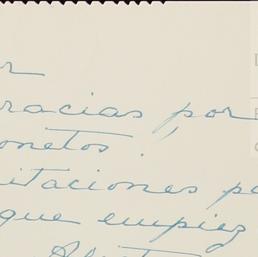 r
racias, por
onetos.
itaciones p
que empiez